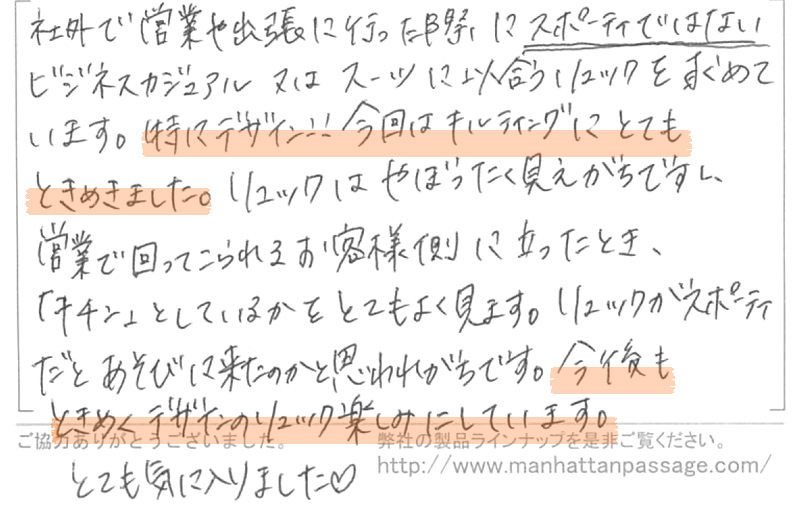 社外で営業や出張に行った際にスポーティではない
ビジネスカジュアル又はスーツに似合うリュックを求めて
います。特にデザイン!! 今回はキルティングにとても
ときめきました。リュックはやぼったく見えがちですし、
営業で回ってこられるお客様側に立ったとき、
「キチン」としているかをとてもよく見ます。リュックがスポーティ
だとあそびに来たのかと思われがちです。今後も
ときめくデザインのリュック楽しみにしています。
ご協力ありがとうございました。 弊社の製品ラインナップを是非ご覧ください。
http://www.manhattanpassage.com/
とても気に入りました♡